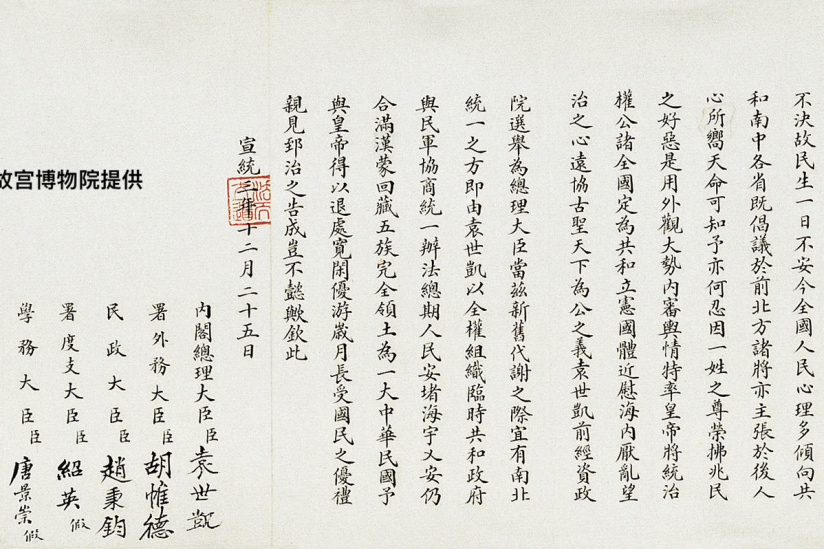 不決故民生一日不安今全國人民心理多傾向共
和南中各省既倡議於前北方諸將亦主張於後人
心所嚮天命可知予亦何忍因一姓之尊榮拂兆民
之好惡是用外觀大勢內審輿情特率皇帝將統治
權公諸全國定為共和立憲國體近慰海內厭亂望
治之心遠協古聖天下為公之義袁世凱前經資政
院選舉為總理大臣當茲新舊代謝之際宜有南北
統一之方即由袁世凱以全權組織臨時共和政府
與民軍協商統一辦法總期人民安堵海宇乂安仍
合滿漢蒙回藏五族完全領土為一大中華民國予
與皇帝得以退處寬閑優游歲月長受國民之優禮
親見郅治之告成豈不懿歟欽此
宣統三年十二月二十五日
法天立道
內閣總理大臣臣袁世凱
署外務大臣臣胡惟德
民政大臣臣趙秉鈞
署度支大臣臣紹英假
學務大臣臣唐景崇假
故宫博物院提供